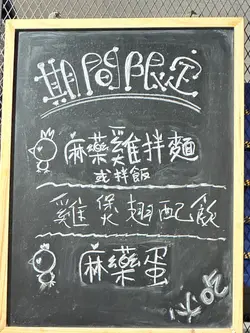 期間限定
麻藥雞拌麵
或拌飯
雞煲翅配飯
麻藥蛋